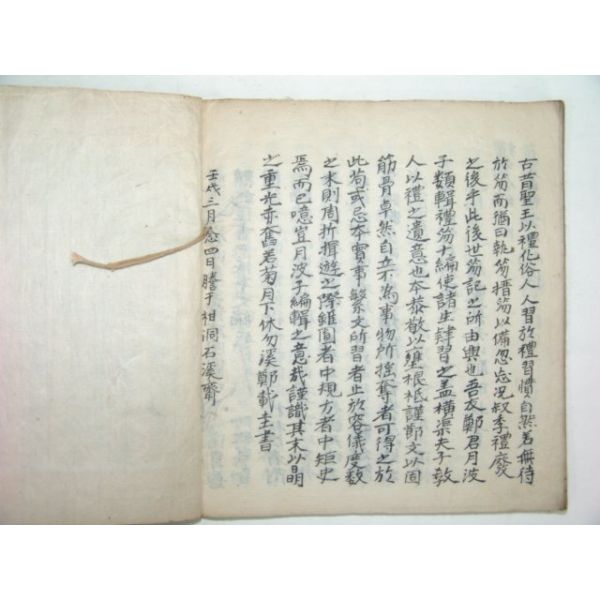 古昔聖王以禮化俗人人習於禮習慣自然若無待
於笏而猶曰執笏搢笏以備忽忘况叔季禮廢
之後乎此後世笏記之所由興也吾友鄭君月波
子類輯禮笏十編使諸生肄習之盖橫渠夫子敎
人以禮之遺意也本恭敬以壅根柢謹節文以固
筋骨卓然自立不為事物所搖奪者可得之於
此苟或忘本實事繁文所習者止於容儀度數
之末則周折揖遊之際雖圓者中規方者中矩史
焉而已噫豈月波子編輯之意哉謹識其末以昭
之重光赤奮若菊月下休勿溪鄭載圭書
壬戌三月念四日謄于柑洞石溪齋